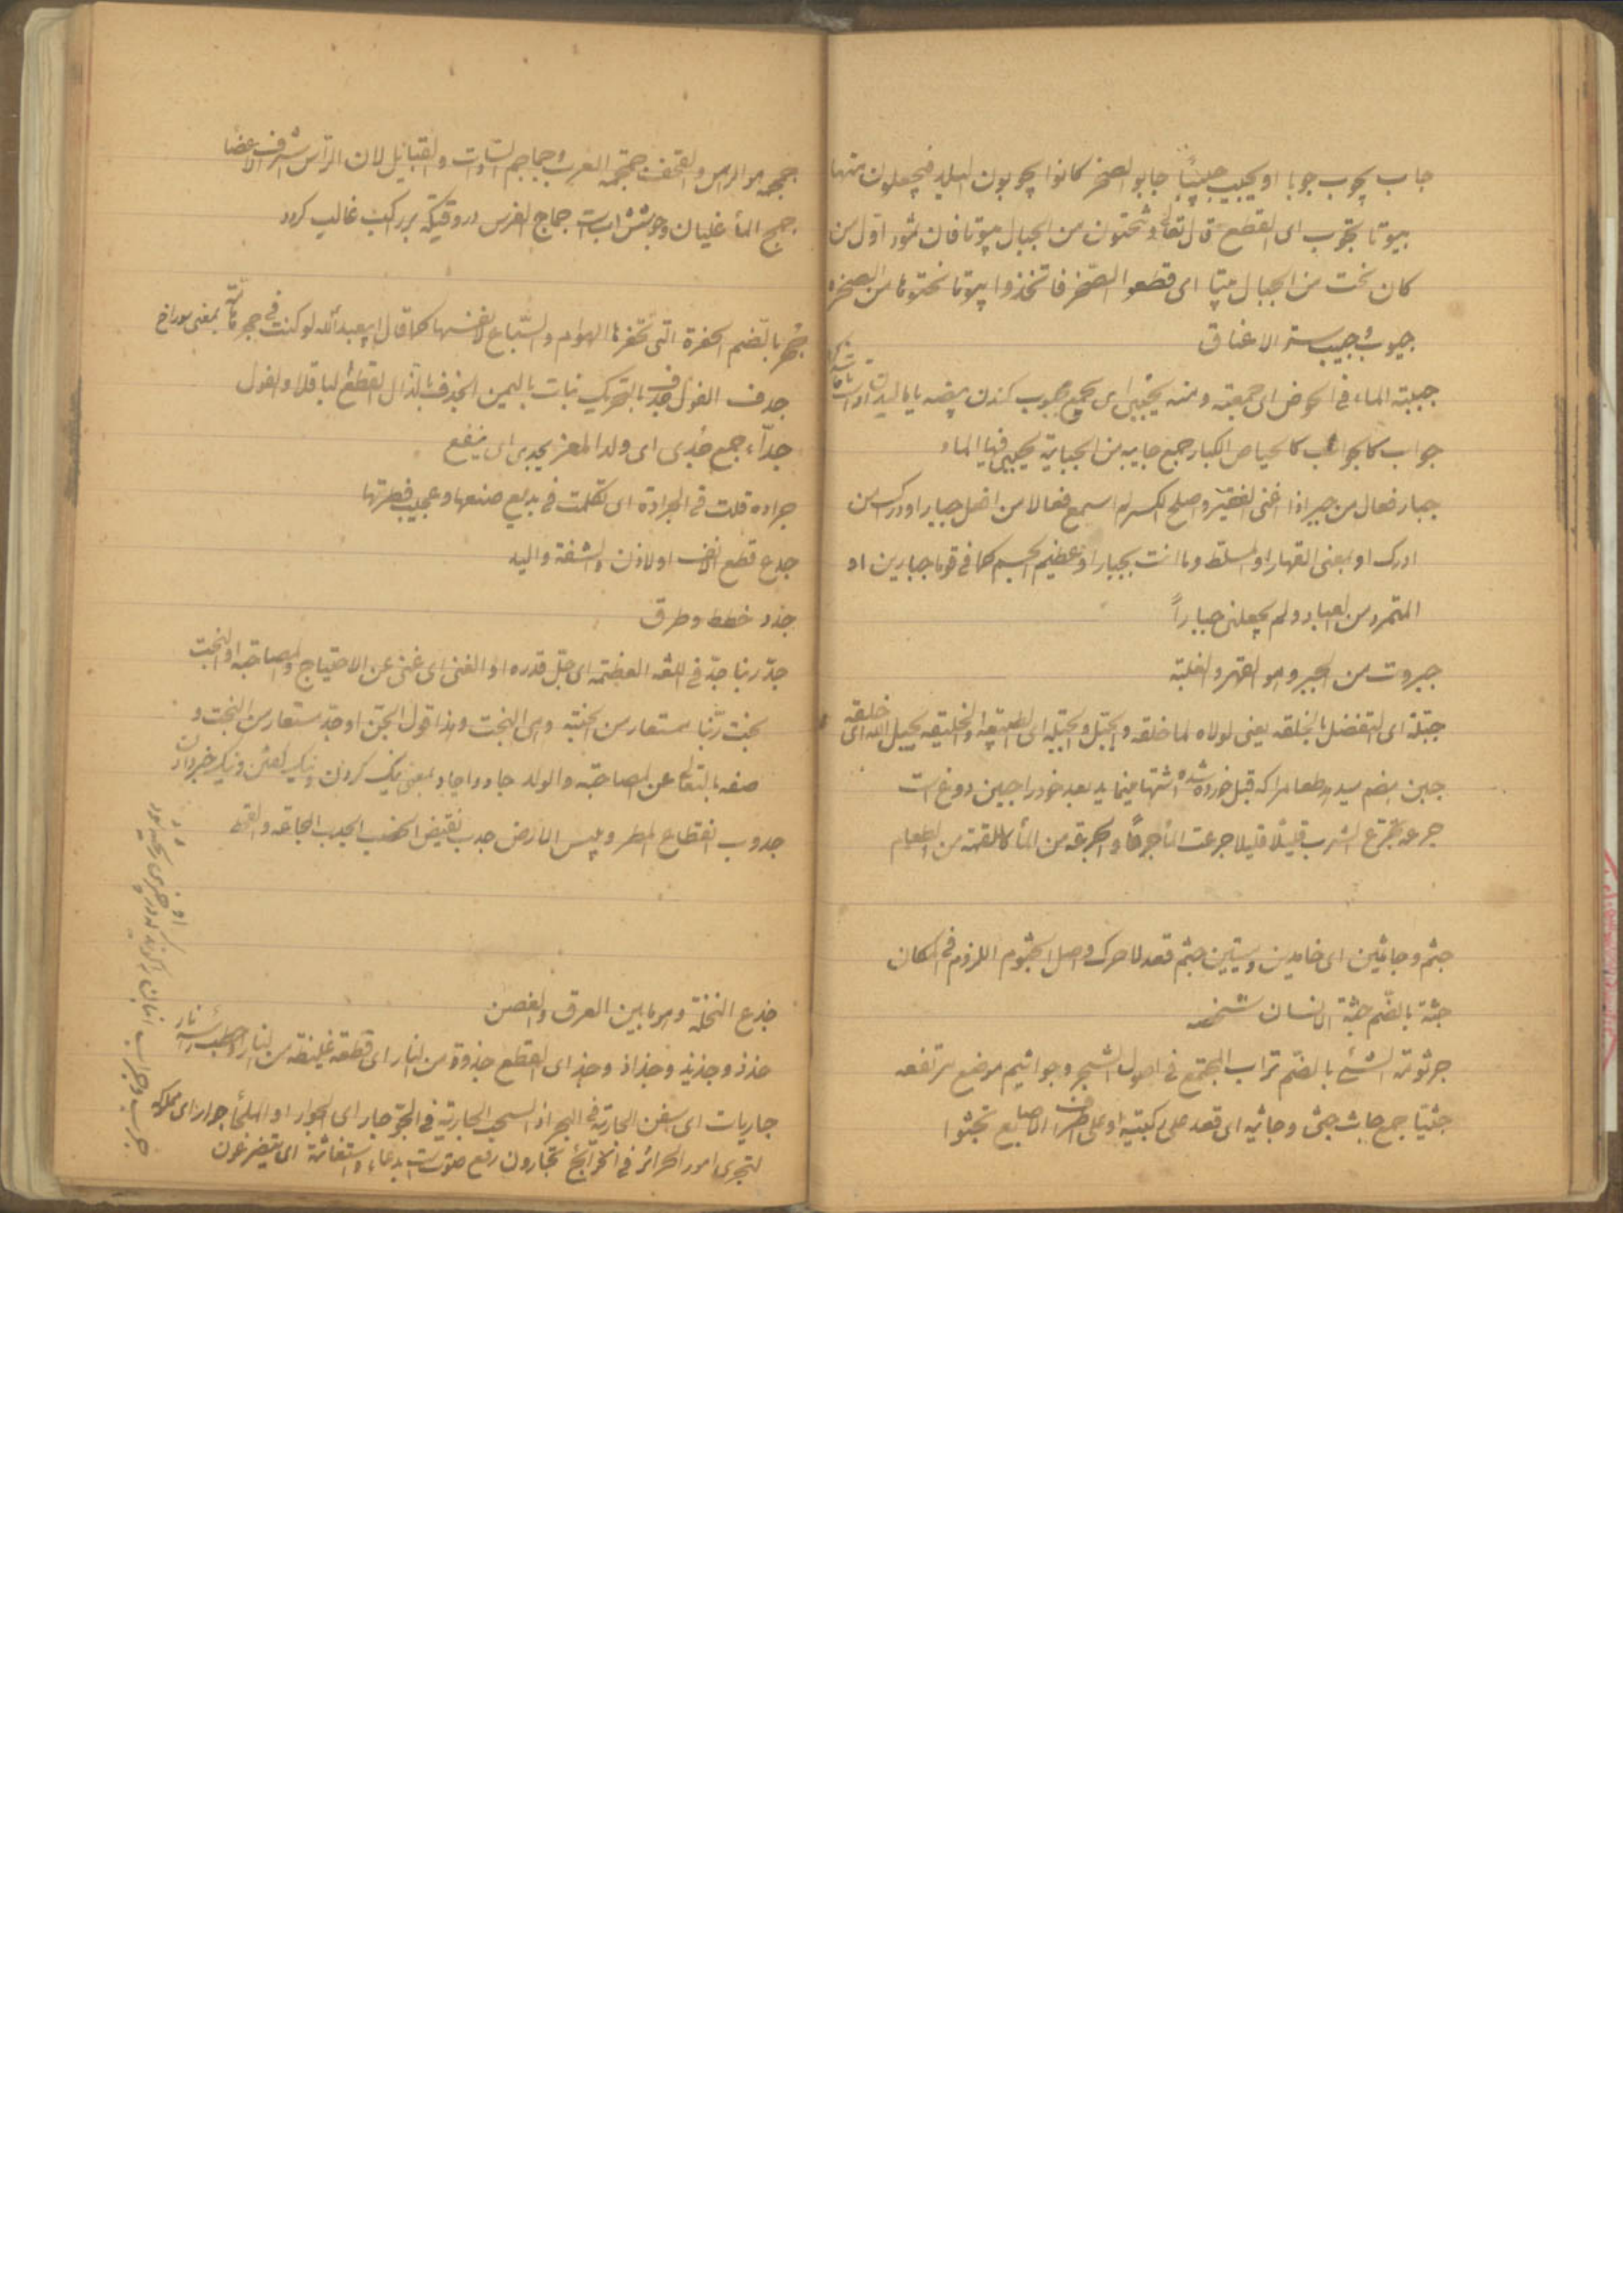 جاب یجوب جوبا او یجیب جیبًا جابو الصخر کانوا یجوبون البلد فیجعلون منها
بیوتا یجوب ای القطع قال تعالی و تنحتون من الجبال بیوتا فان ثمود اوّل من
کان نحت من الجبال بیتا ای قطعو الصّخر فاتخذوا بیوتا نحتوها من الصخره
جیوب جیب ستر الاعناق
جببته الماء فی الحوض ای جمعته و منه یجبی ای یجمع
جواب کالجواب کالحیاض الکبار جمع جابیه من الجبایة یجبی فیها الماء
جبار فعال من جبر اذا اغنی الفقیر و اصلح الکسر لم اسمع فعالا من افعل جبار او درک من
ادرک او بمعنی القهار او المسلط و ما انت بجبار او عظیم الجسم کما فی قوما جبارین او
المتمرد من العباد و لم یجعلنی جباراً
جبروت من الجبر و هو القهر و الغلبة
جبّلة ای التفضل بالخلقه یعنی لولاه لما خلقه و الجبل و الجبلّه ای الطبیعة و الخلیقه یجبل الله ای خلقه
جبن هضم میدهد طعام را که قبل خورده شده اشتها مینماید بعد خود را جبن دوغ است
جرعه تجرّع الشرب قلیلًا قلیلا جرعت المأ جرعًا و الجرعة من المأ کاللقمة من الطعام
جثم و جاثمین ای خامدین و میتین جثم قعد لا حرک و اصل الجثوم اللزوم فی المکان
جثة بالضّم جثة الانسان شخصه
جرثومة الشئ بالضّم تراب المجتمع فی اصول الشجر و جراثیم مرضع مرتفعه
جثیّا جمع جاث جثی و جاثیه ای قعد علی رکبتیه او علی اطراف الاصابع تجثوا
جمجمه هو الرأس و القحف جمجمه العرب و جماجم السّادات و القبائل لان الرّأس اشرف الاعضا
جمح المأ غلیان و جوشش آبست جماح الفرس در وقتیکه بر راکب غالب گردد
جُحر بالضّم الحفرة الّتی تحفرها الهوام و السّباع لانفسها کما قال ابیعبدالله لو کنت فی جحر هامّة بمعنی سوراخ
جدف الغول جدف بالتحریک نبات بالیمن الجذف بالذّال القطع الباقلا و الفول
جداء جمع جدی ای ولد المعز یجدی ای ینفع
جراده قلت فی الجرادة ای تکلمت فی بدیع صنعها و عجیب فطرتها
جدع قطع الانف او الاذن و الشفة و الید
جدد خطط و طرق
جدّ ربنا جدّ فی اللغه العظمة ای جلّ قدره او الغنی ای غنی عن الاحتیاج و المصاحبه او البخت
بخت ربّنا مستعار من و هی البخت و هذا قول الجنّ او جدّ مستعار من البخت و
صفه بالتعالی عن المصاحبه و الولد جاد و اجاد بمعنی نیک کردن و نیک گفتن و نیک خبر دادن
جدوب انقطاع المطر و یبس الارض جدب نقیض الخصب الجدب المجاعه و القحط
جذع النخلة و هو ما بین العرق و الغصن
جذذ و جذیذ و جذاذ و جذ ای القطع جذوة من النار ای قطعة غلیظة من النار او حطب رأسه نار
جاریات ای السفن الجاریة فی البحر اذ السحب الجاریة فی الجوّ جار ای الجوار او الملجأ
لتجری امور الجرائر فی الجرائح تجارون رفع صوت است بدعاء و استغاثة ای یتضرعون